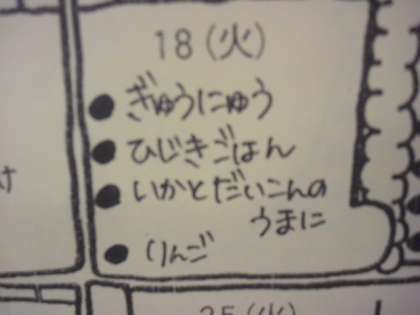 18(火)
●ぎゅうにゅう
●ひじきごはん
●いかとだいこんの
うまに
●りんご
25(火)